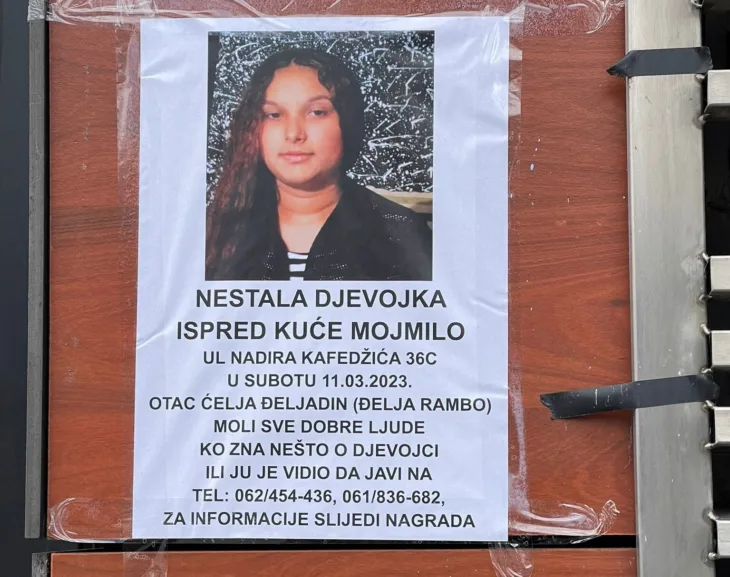 NESTALA DJEVOJKA
ISPRED KUĆE MOJMILO
UL NADIRA KAFEDŽIĆA 36C
U SUBOTU 11.03.2023.
OTAC ĆELJA ĐELJADIN (ĐELJA RAMBO)
MOLI SVE DOBRE LJUDE
KO ZNA NEŠTO O DJEVOJCI
ILI JU JE VIDIO DA JAVI NA
TEL: 062/454-436, 061/836-682,
ZA INFORMACIJE SLIJEDI NAGRADA